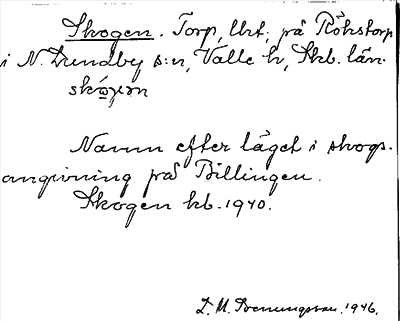 Skogen. Torp, Urt, på Rökstorp
i N. Lundby s:n, Valle h, Skb. län.
skó̤γən
Namn efter läget i skogs-
angivning på Billingen.
Skogen kb. 1940.
L. M. Svenungsson. 1946.